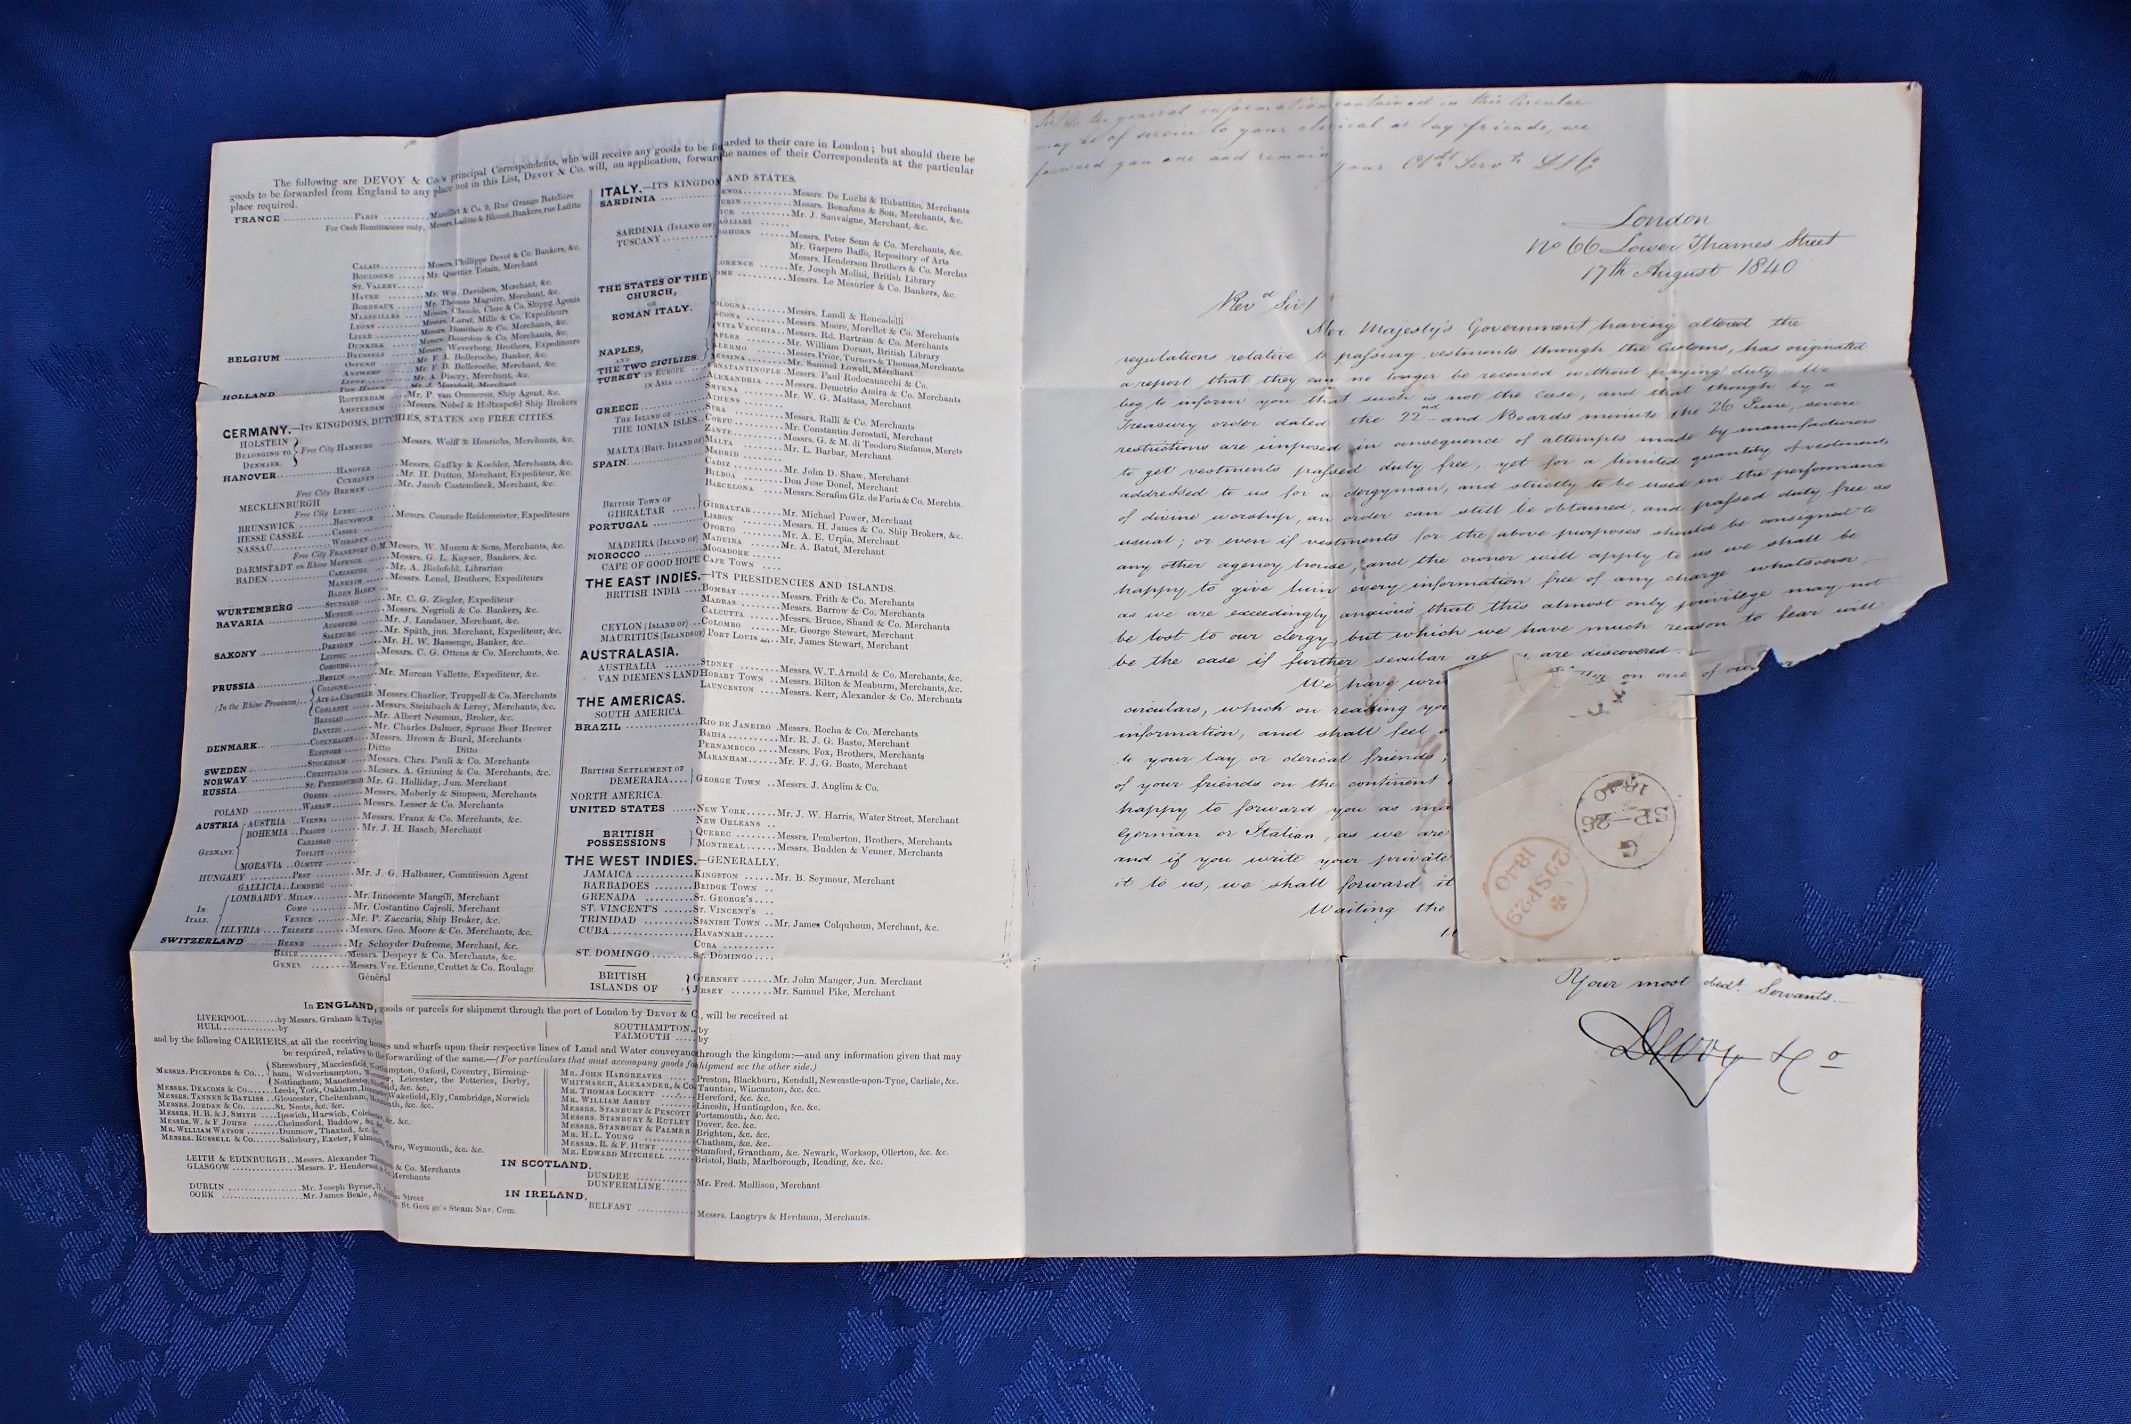 The following are DEVOY & Co.'s principal Correspondents, who will receive any goods to be forwarded to their care in London; but should there be
goods to be forwarded from England to any place not in this List, DEVOY & Co. will, on application, forward the names of their Correspondents at the particular
place required.
FRANCE PARIS Marcillet & Co. 9, Rue Grange Bateliére
For Cash Remittances only, Messrs. Lafitte & Blount, Bankers, rue Lafitte
CALAIS Messrs. Phillippe Devot & Co. Bankers, &c.
BOULOGNE Mr. Quettier Totain, Merchant
ST. VALERY
HAVRE Mr. Wm. Davidson, Merchant, &c.
BORDEAUX Mr. Thomas Maguire, Merchant, &c.
MARSEILLES Messrs. Claude, Clerc & Co. Shippg Agents
LYONS Messrs. Larat, Mille & Co. Expediteurs
LILLE Messrs. Boniface & Co. Merchants, &c.
DUNKIRK Messrs. Bourdon & Co. Merchants, &c.
BELGIUM BRUSSELS Messrs. Weverberg, Brothers, Expediteurs
OSTEND Mr. F. A. Belleroche, Banker, &c.
ANTWERP Mr. F. D. Belleroche, Merchant, &c.
LIEGE Mr. A. Discry, Merchant, &c.
HOLLAND THE HAGUE Mr. J. Marshall, Merchant
ROTTERDAM Mr. P. van Ommeren, Ship Agent, &c.
AMSTERDAM Messrs. Nobel & Holtzapfel Ship Brokers
GERMANY.—ITS KINGDOMS, DUTCHIES, STATES AND FREE CITIES.
HOLSTEIN
BELONGING TO Free City HAMBURG Messrs. Wolff & Heurichs, Merchants, &c.
DENMARK.
HANOVER HANOVER Messrs. Gaffky & Koehler, Merchants, &c.
CUXHAVEN Mr. H. Dutton, Merchant, Expediteur, &c.
Free City BREMEN Mr. Jacob Castendieck, Merchant, &c.
MECKLENBURGH
Free City LUBEC
BRUNSWICK BRUNSWICK Messrs. Conrade Reidemeister, Expediteurs
HESSE CASSEL CASSEL
NASSAU WISBADEN
Free City FRANKFORT O.M. Messrs. W. Mumm & Sons, Merchants, &c.
DARMSTADT on Rhine MAYENCE Messrs. G. L. Kayser, Bankers, &c.
BADEN CARLSRUHE Mr. A. Bielefeld, Librarian
MANHEIM Messrs. Lenel, Brothers, Expediteurs
BADEN BADEN
WÜRTEMBERG STUTGARD Mr. C. G. Ziegler, Expediteur
BAVARIA MUNICH Messrs. Negrioli & Co. Bankers, &c.
AUGSBURG Mr. J. Landauer, Merchant, &c.
SALZBURG Mr. Späth, jun. Merchant, Expediteur, &c.
SAXONY DRESDEN Mr. H. W. Bassenge, Banker, &c.
LEIPSIC Messrs. C. G. Ottens & Co. Merchants, &c.
COBOURG
PRUSSIA BERLIN Mr. Moreau Vallette, Expediteur, &c.
(In the Rhine Provinces) COLOGNE
AIX-LA-CHAPELLE Messrs. Charlier, Truppell & Co. Merchants
COBLENTZ Messrs. Steinbach & Leroy, Merchants, &c.
BRESLAU Mr. Albert Neuman, Broker, &c.
DANTZIG Mr. Charles Dalmer, Spruce Beer Brewer
DENMARK COPENHAGEN Messrs. Brown & Burd, Merchants
ELSINORE Ditto Ditto
SWEDEN STOCKHOLM Messrs. Chrs. Pauli & Co. Merchants
NORWAY CHRISTIANIA Messrs. A. Grüning & Co. Merchants, &c.
RUSSIA ST. PETERSBURGH Mr. G. Holliday, Jun. Merchant
ODESSA Messrs. Moberly & Simpson, Merchants
POLAND WARSAW Messrs. Lesser & Co. Merchants
AUSTRIA AUSTRIA VIENNA Messrs. Franz & Co. Merchants, &c.
BOHEMIA PRAGUE Mr. J. H. Basch, Merchant
CARLSBAD
GERMANY. TOPLITZ
MORAVIA OLMUTZ
HUNGARY PEST Mr. J. G. Halbauer, Commission Agent
GALLICIA LEMBERG
LOMBARDY MILAN Mr. Innocente Mangili, Merchant
IN COMO Mr. Costantino Cajroli, Merchant
ITALY. VENICE Mr. P. Zaccaria, Ship Broker, &c.
ILLYRIA TRIESTE Messrs. Geo. Moore & Co. Merchants, &c.
SWITZERLAND BERNE Mr. Schnyder Dufresne, Merchant, &c.
BASLE Messrs. Despeyr & Co. Merchants, &c.
GENEV Messrs. Vve. Etienne, Crottet & Co. Roulage
Général
ITALY.—ITS KINGDOM AND STATES.
SARDINIA ENOA Messrs. De Luchi & Rubattino, Merchants
URIN Messrs. Bonafous & Son, Merchants, &c.
ICE Mr. J. Sauvaigne, Merchant, &c.
SARDINIA (ISLAND OF) AGLIARI
TUSCANY GHORN Messrs. Peter Senn & Co. Merchants, &c.
Mr. Gaspero Baffo, Repository of Arts
Messrs. Henderson Brothers & Co. Merchts
LORENCE Mr. Joseph Molini, British Library
THE STATES OF THE CHURCH, OR ROMAN ITALY. OME Messrs. Le Mesurier & Co. Bankers, &c.
OLOGNA Messrs. Landi & Roncadelli
NCONA Messrs. Moore, Morellet & Co. Merchants
VITA VECCHIA Messrs. Rd. Bartram & Co. Merchants
NAPLES, AND THE TWO SICILIES. APLES Mr. William Dorant, British Library
ALERMO Messrs. Prior, Turners & Thomas, Merchants
ESSINA Mr. Samuel Lowell, Merchant
TURKEY IN EUROPE ONSTANTINOPLE Messrs. Paul Rodocanacchi & Co.
IN ASIA ALEXANDRIA Messrs. Demetio Amira & Co. Merchants
SMYRNA Mr. W. G. Mattass, Merchant
GREECE ATHENS
THE ISLAND OF SYRA Messrs. Ralli & Co. Merchants
THE IONIAN ISLES CORFU Mr. Constantin Jerostati, Merchant
ZANTE Messrs. G. & M. di Teodoro Stefanos, Merchts
MALTA (BRIT. ISLAND OF) MALTA Mr. L. Barbar, Merchant
SPAIN MADRID
CADIZ Mr. John D. Shaw, Merchant
BILBOA Don Jose Donel, Merchant
BARCELONA Messrs. Serafin Glz. de Faria & Co. Merchts.
BRITISH TOWN OF
GIBRALTAR GIBRALTAR Mr. Michael Power, Merchant
PORTUGAL LISBON Messrs. H. James & Co. Ship Brokers, &c.
OPORTO Mr. A. E. Urpia, Merchant
MADEIRA (ISLAND OF) MADEIRA Mr. A. Batut, Merchant
MOROCCO MOGADORE
CAPE OF GOOD HOPE CAPE TOWN
THE EAST INDIES.—ITS PRESIDENCIES AND ISLANDS.
BRITISH INDIA BOMBAY Messrs. Frith & Co. Merchants
MADRAS Messrs. Barrow & Co. Merchants
CALCUTTA Messrs. Bruce, Shand & Co. Merchants
CEYLON (ISLAND OF) COLOMBO Mr. George Stewart, Merchant
MAURITIUS (ISLANDS OF) PORT LOUIS Mr. James Stewart, Merchant
AUSTRALASIA.
AUSTRALIA SYDNEY Messrs. W. T. Arnold & Co. Merchants, &c.
VAN DIEMEN'S LAND HOBART TOWN Messrs. Bilton & Meaburn, Merchants, &c.
LAUNCESTON Messrs. Kerr, Alexander & Co. Merchants
THE AMERICAS.
SOUTH AMERICA.
BRAZIL RIO DE JANEIRO Messrs. Rocha & Co. Merchants
BAHIA Mr. R. J. G. Basto, Merchant
PERNAMBUCO Messrs. Fox, Brothers, Merchants
MARANHAM Mr. F. J. G. Basto, Merchant
BRITISH SETTLEMENT OF
DEMERARA GEORGE TOWN Messrs. J. Anglim & Co.
NORTH AMERICA.
UNITED STATES NEW YORK Mr. J. W. Harris, Water Street, Merchant
NEW ORLEANS
BRITISH QUEBEC Messrs. Pemberton, Brothers, Merchants
POSSESSIONS MONTREAL Messrs. Budden & Venner, Merchants
THE WEST INDIES.—GENERALLY.
JAMAICA KINGSTON Mr. B. Seymour, Merchant
BARBADOES BRIDGE TOWN
GRENADA ST. GEORGE'S
ST. VINCENT'S ST. VINCENT'S
TRINIDAD SPANISH TOWN Mr. James Colquhoun, Merchant, &c.
CUBA HAVANNAH
CUBA
ST. DOMINGO ST. DOMINGO
BRITISH GUERNSEY Mr. John Manger, Jun. Merchant
ISLANDS OF JERSEY Mr. Samuel Pike, Merchant
In ENGLAND, goods or parcels for shipment through the port of London by DEVOY & C , will be received at
LIVERPOOL by Messrs. Graham & Tayler
HULL by
SOUTHAMPTON by
FALMOUTH by
and by the following CARRIERS, at all the receiving houses and wharfs upon their respective lines of Land and Water conveyance through the kingdom:—and any information given that may
be required, relative to the forwarding of the same.—(For particulars that must accompany goods for shipment see the other side.)
MESSRS. PICKFORDS & CO. Shrewsbury, Macclesfield, Northampton, Oxford, Coventry, Birming-
ham, Wolverhampton, Worcester, Leicester, the Potteries, Derby,
Nottingham, Manchester, Sheffield, &c. &c.
MESSRS. DEACONS & CO. Leeds, York, Oakham, Wakefield, Ely, Cambridge, Norwich
MESSRS. TANNER & BAYLISS Gloucester, Cheltenham, Monmouth, &c. &c.
MESSRS. JORDAN & CO. St. Neots, &c. &c.
MESSRS. H. B. & J. SMITH Ipswich, Harwich, Colchester, &c. &c.
MESSRS. W. & F. JOHNS Chelmsford, Baddow, &c. &c.
MR. WILLIAM WATSON Dunmow, Thaxted, &c. &c.
MESSRS. RUSSELL & CO. Salisbury, Exeter, Falmouth, Truro, Weymouth, &c. &c.
MR. JOHN HARGREAVES Preston, Blackburn, Kendall, Newcastle-upon-Tyne, Carlisle, &c.
WHITMARCH, ALEXANDER, & CO. Taunton, Wincanton, &c. &c.
MR. THOMAS LOCKETT Hereford, &c. &c.
MR. WILLIAM ASHBY Lincoln, Huntingdon, &c. &c.
MESSRS. STANBURY & PESCOTT Portsmouth, &c. &c.
MESSRS. STANBURY & RUTLEY Dover. &c. &c.
MESSRS. STANBURY & PALMER Brighton, &c. &c.
MR. H. L. YOUNG Chatham, &c. &c.
MESSRS. R. & F. HUNT Stamford, Grantham, &c. Newark, Worksop, Ollerton, &c. &c.
MR. EDWARD MITCHELL Bristol, Bath, Marlborough, Reading, &c. &c.
IN SCOTLAND.
LEITH & EDINBURGH Messrs. Alexander & Co. Merchants
GLASGOW Messrs. P. Henderson & Co. Merchants
DUNDEE
DUNFERMLINE Mr. Fred. Mollison, Merchant
IN IRELAND.
DUBLIN Mr. Joseph Byrne, Street
CORK Mr. James Beale, St. George's Steam Nav. Com.
BELFAST Messrs. Langtrys & Herdman, Merchants.
Sir/ As the general information contained in this Circular
may be of service to your clerical or lay friends, we
forward you one and remain your Obdt Servts D & Co
London
No 66 Lower Thames Street
17th August 1840
Revd Sir/
Her Majesty's Government having altered the
regulations relative to passing vestments through the Customs, has originated
a report that they can no longer be received without paying duty. We
beg to inform you that such is not the case, and that though by a
Treasury order dated the 22nd and Boards minute the 26 June, severe
restrictions are imposed in consequence of attempts made by manufacturers
to get vestments passed duty free, yet for a limited quantity of vestments
addressed to us for a clergyman, and strictly to be used in the performance
of divine worship, an order can still be obtained, and passed duty free as
usual; or even if vestments for the above purposes should be consigned to
any other agency house, and the owner will apply to us we shall be
happy to give him every information free of any charge whatsoever,—
as we are exceedingly anxious that this almost only privilege may not
be lost to our clergy, but which we have much reason to fear will
be the case if further secular are discovered.—
We have wri on one of our
circulars, which on reading you
information, and shall feel
to your lay or clerical friends,
of your friends on the continent
happy to forward you as ma
German or Italian, as we are
and if you write your private
it to us, we shall forward it
Waiting the
Your most obedt. Servants.—
Devoy & Co
G
SP—26
1840
29SP29
1840